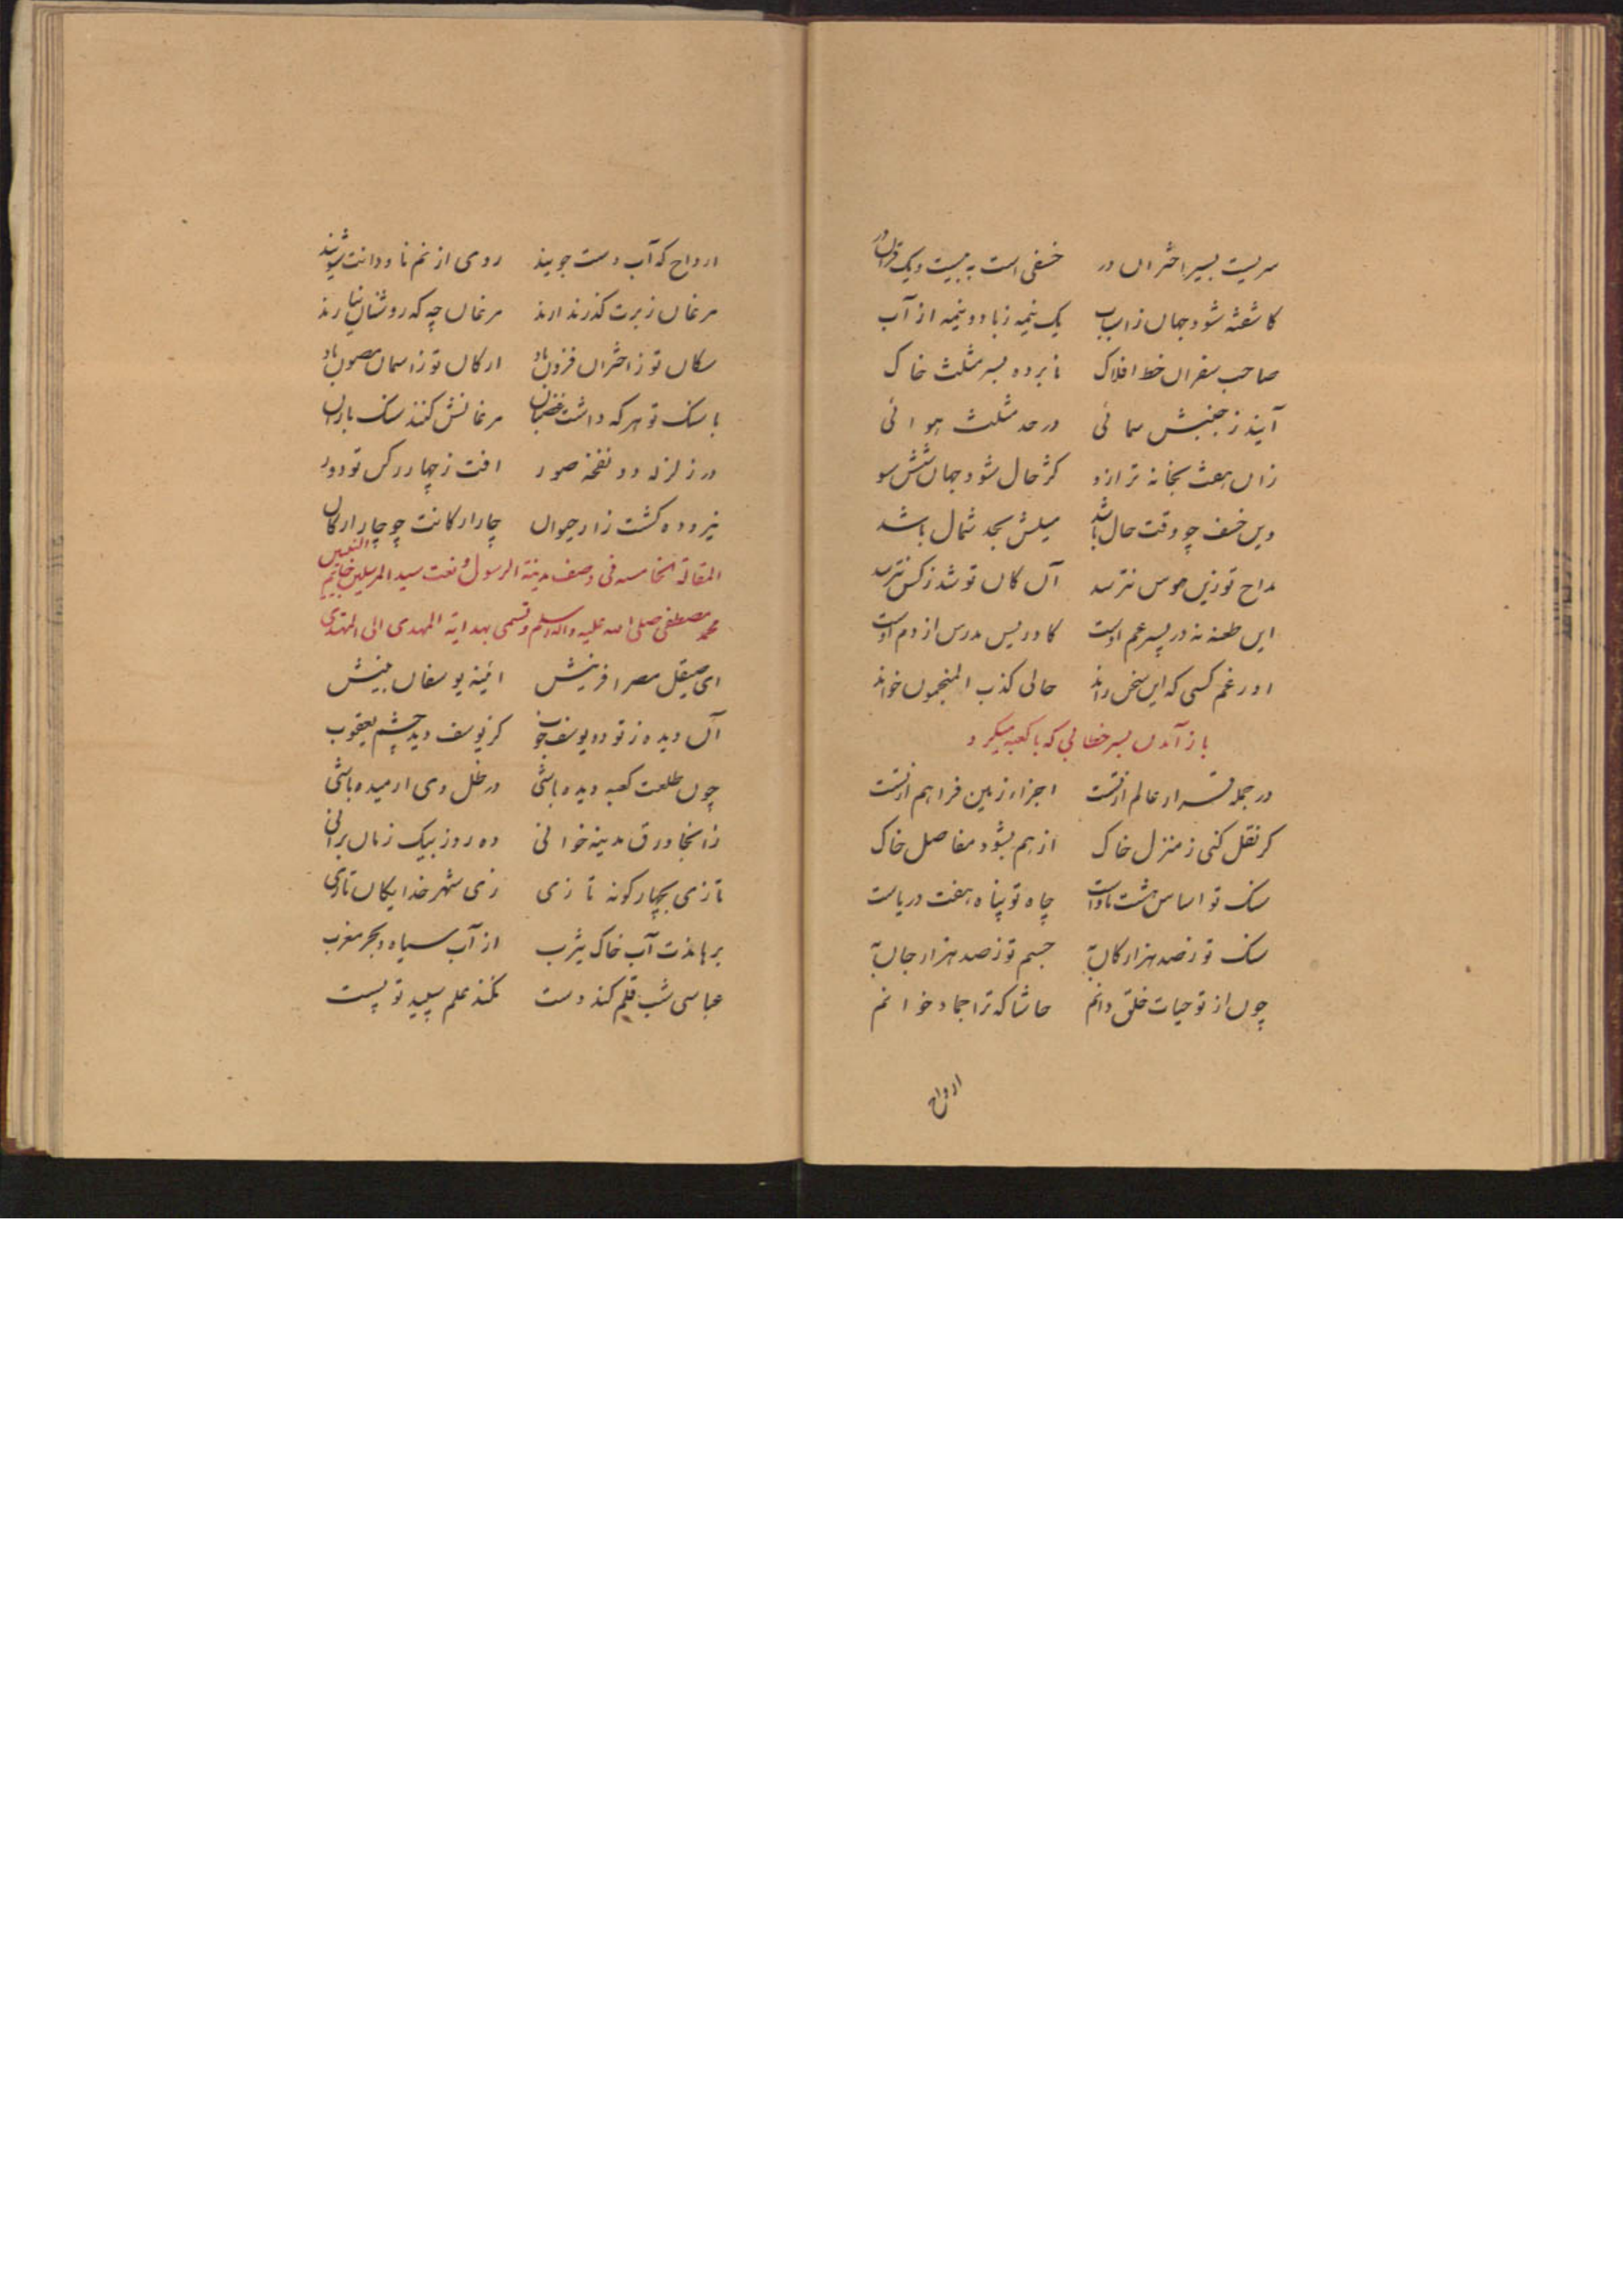 سریست بسیر اختران در خسفی است به بیست و یک قران در
کاشفته شود جهان ز اسباب یک نیمه ز باد و نیمه از آب
صاحب سفران خط افلاک نابرده بسر مثلث خاک
آیند ز جنبش سمائی در حد مثلث هوائی
زان هفت بخانه ترازو کژحال شود جهان شش سو
وین خسف چو وقت حال باشد میلش بحد شمال باشد
مداح تو زین هوس نترسد آن کان تو شد ز کس نترسد
این طعنه نه در پسر عم اوست کادریس مدرس از دم اوست
او رغم کسی که این سخن راند حالی کذب المنجمون خواند
باز آمدن بسر خطابی که با کعبه میکرد
در جمله قرار عالم از تست اجزاء زمین فراهم از تست
کر نقل کنی ز منزل خاک از هم بشود مفاصل خاک
سنک تو اساس هشت ماواست چاه تو پناه هفت دریاست
سنک تو ز صد هزار کان به جسم تو ز صد هزار جان به
چون از تو حیات خلق دانم حاشا که ترا جماد خوانم
ارواح
ارواح که آب دست جویند روی از نم ناودانت شویند
مرغان زبرت کذر ندارند مرغان چه که روشنان نیارند
سکان تو ز اختران فزون باد ارکان تو ز اسمان مصون باد
با سنک تو هر که داشت عصیان مرغانش کنند سنک باران
در زلزله دو نفخه صور افت ز چهار رکن تو دور
نیرو ده کشت زار حیوان چار ارکانت چو چار ارکان
المقالة الخامسه فی وصف مدینة الرسول و نعت سید المرسلین خاتم النبیین
محمد مصطفی صلی الله علیه و اله و سلم و تسمی بهدایة المهدی الی المهتدی
ای صیقل مصر افرینش ائینه یوسفان بینش
آن دیده ز تو دو یوسف خوب کز یوسف دید چشم یعقوب
چون طلعت کعبه دیده باشی در ظل وی ارمیده باشی
زانجا ورق مدینه خوانی ده روز بیک زمان برانی
تازی بچهار کونه تازی زی شهر خدایکان تازی
برهاندت آب خاک یثرب از آب سیاه و بحر مغرب
عباسی شب قلم کند دست نکند علم سپید تو پست